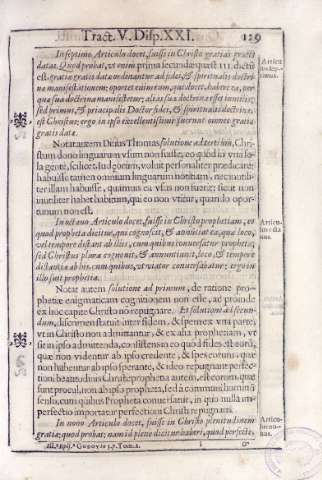 Tract. V. Disp. XXI. 129
In septimo Articulo docet, fuisse in Christo gratias gratis
datas. Quod probat, ut enim prima secundæ quæst. 111. dictũ
est, gratia gratis data ordinantur ad fidei, & spiritualis doctri-
na manifestationem: oportet autem eum, qui docet, habere ea, per
quæ sua doctrina manifestetur; alias sua doctrina esset inutilis;
sed primus, & principalis Doctor fidei, & spiritualis doctrinæ,
est Christus; ergo in ipso excellentissime fuerunt omnes gratiæ
gratis data.
Articu-
Notat autem Divus Thomas solutione ad tertium, Chri-
stum dono linguarum usum non fuisse, eo quod in una so-
la gente, scilicet Iudæorum, voluit personaliter prædicare;
habuisse tamen omnium linguarum notitiam, nec inutili-
ter illam habuisse, quamvis ea usus non fuerit; sicut non
inutiliter habet habitum, qui eo non utitur, quando op-
portunum non est.
In octavo Articulo docet, fuisse in Christo prophetiam, eo
quod propheta dicitur, qui cognoscit, & annuntiat ea, quæ loco,
vel tempore distant ab illis, cum quibus conversatur propheta;
sed Christus plura cognovit, & annuntiavit, loco, & tempore
distantia ab his, cum quibus, ut viator conversabatur; ergo in
illo fuit prophetia.
Articu-
Notat autem solutione ad primum, de ratione pro-
phetiæ enigmaticam cognitionem non esse, ad proinde
ex hoc capite Christo nõ repugnare. Et solutione ad secun-
dum, discrimen statuit inter fidem, & spem ex una parte,
ut in Christo non admittantur, & ex alia prophetiam, ut
sit in ipso admittenda, consistens in eo quod fides est eorũ,
quæ non videntur ab ipso credente, & spes eorum, quæ
non habentur ab ipso sperante, & ideo repugnant perfec-
tioni beatitudinis Christi: propheta autem, est eorum, quæ
sunt procul, non ab ipso propheta, sed à communi hominũ
sensu, cum quibus Propheta conversatur, in quo nulla im-
perfectio importatur perfectioni Christi repugnans.
In nono Articulo docet, fuisse in Christo plenitudinem
gratiæ; quod probat: nam id plene dicitur haberi, quod perfecte,
Articu-
Godoy in 3. p. Tom. 2. I &